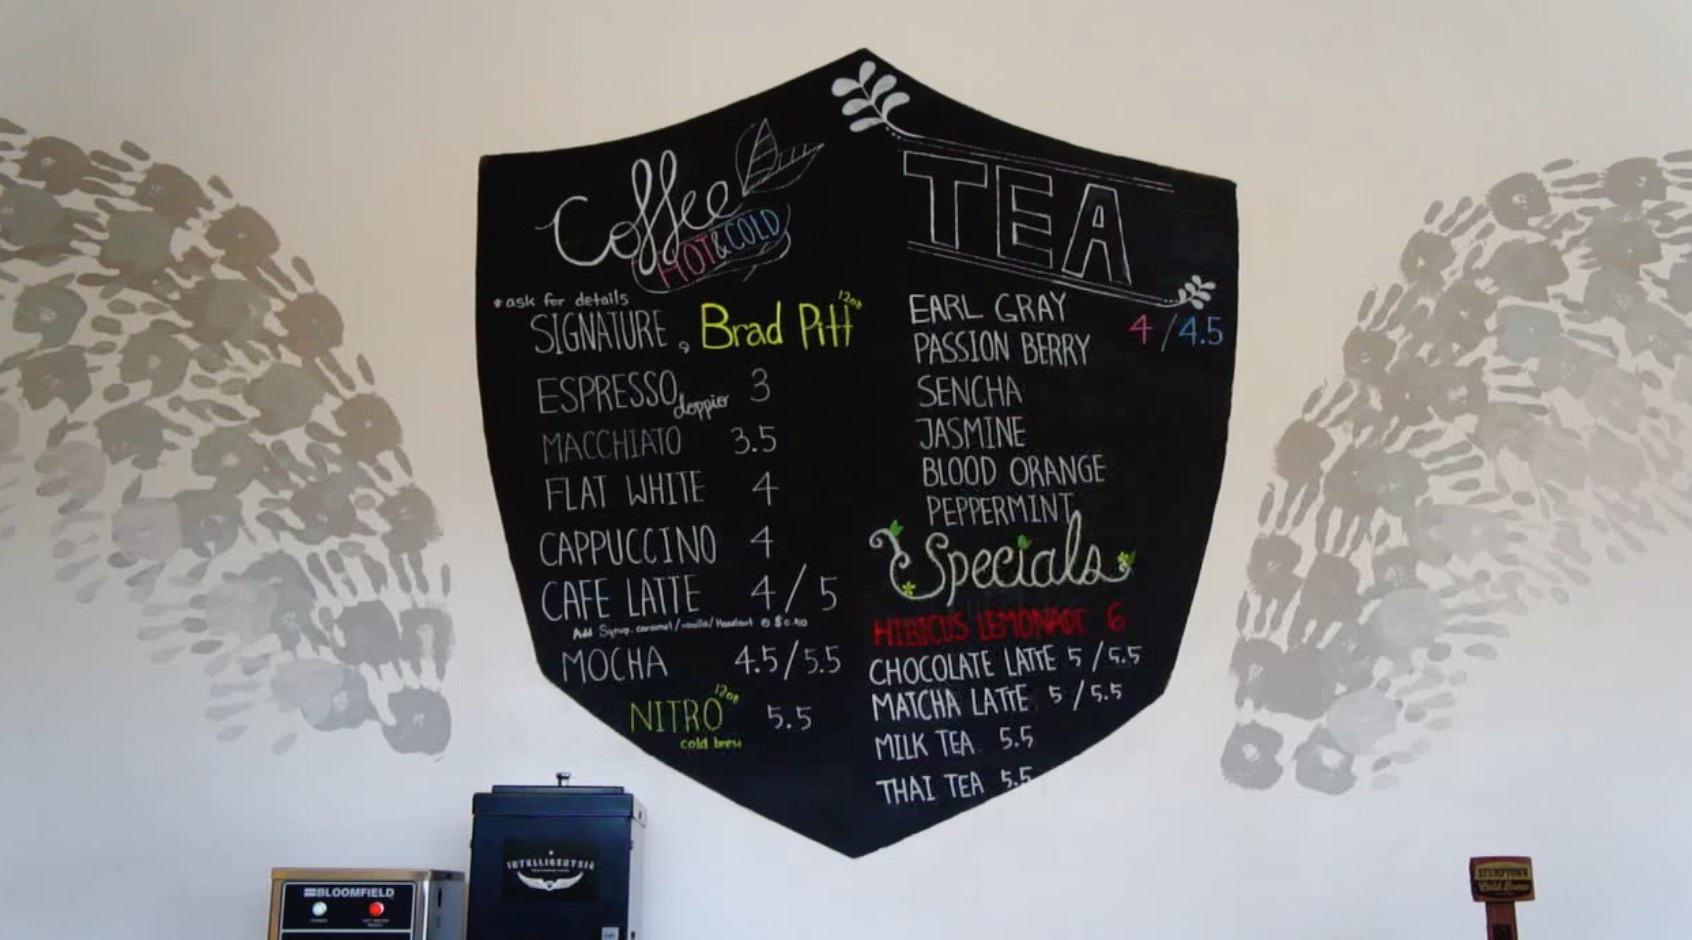 Coffee
HOT & COLD
*ask for details
SIGNATURE, Brad Pitt 12oz
ESPRESSO doppio 3
MACCHIATO 3.5
FLAT WHITE 4
CAPPUCCINO 4
CAFE LATTE 4/5
Add Syrup. caramel/vanilla/Hazelnut @ $0.50
MOCHA 4.5/5.5
NITRO 12oz 5.5
cold brew
TEA
EARL GRAY
4/4.5
PASSION BERRY
SENCHA
JASMINE
BLOOD ORANGE
PEPPERMINT
Specials
HIBICUS LEMONADE 6
CHOCOLATE LATTE 5/5.5
MATCHA LATTE 5/5.5
MILK TEA 5.5
THAI TEA 5.5
INTELLIGENTSIA
BLOOMFIELD
POWER
STUMPTOWN
Cold Brew